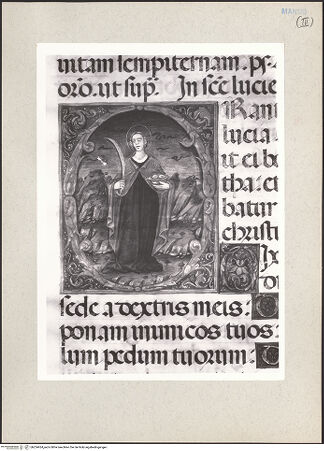 MANUS
(III)
uitam sempiternam. ps.
or̄o. ut sup̄. In sc̄e lucie
Rani
lucia.
ut ei be
tha: et
batur
christi
Ix
di
sede a dextris meis:
ponam inimicos tuos:
lum pedum tuorum: